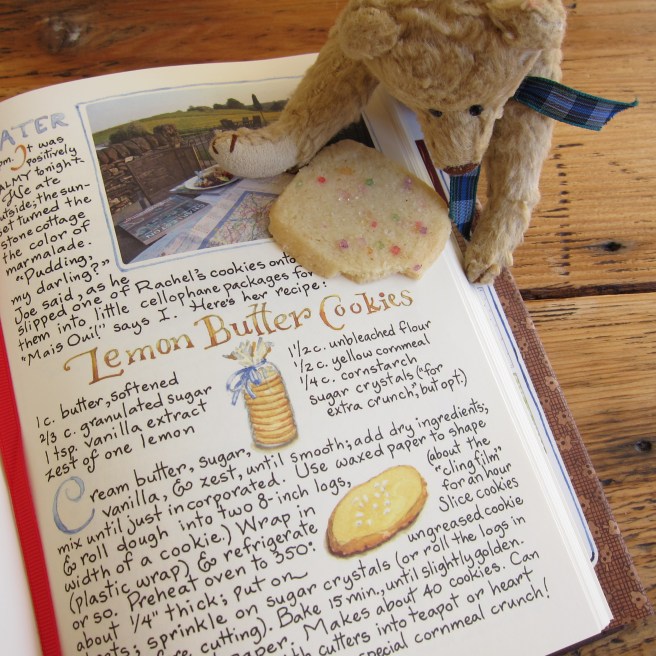 ATER
om. It was
positively
ALMY tonight.
We ate
utside; the sun-
set turned the
stone cottage
the color of
marmalade.
"Pudding,
my darling?"
Joe said, as he
slipped one of Rachel's cookies onto
them into little cellophane packages for
"Mais Oui!" says I. Here's her recipe:
Lemon Butter Cookies
1 c. butter, softened
2/3 c. granulated sugar
1 tsp. vanilla extract
zest of one lemon
1 1/2 c. unbleached flour
1/2 c. yellow cornmeal
1/4 c. cornstarch
sugar crystals ("for
extra crunch," but opt.)
Cream butter, sugar,
vanilla, & zest, until smooth; add dry ingredients;
mix until just incorporated. Use waxed paper to shape
& roll dough into two 8-inch logs, (about the
width of a cookie.) Wrap in "cling film"
(plastic wrap) & refrigerate for an hour
or so. Preheat oven to 350°. Slice cookies
about 1/4" thick; put on ungreased cookie
sheets; sprinkle on sugar crystals (or roll the logs in
before cutting). Bake 15 min., until slightly golden.
paper. Makes about 40 cookies. Can
cutters into teapot or heart
special cornmeal crunch!